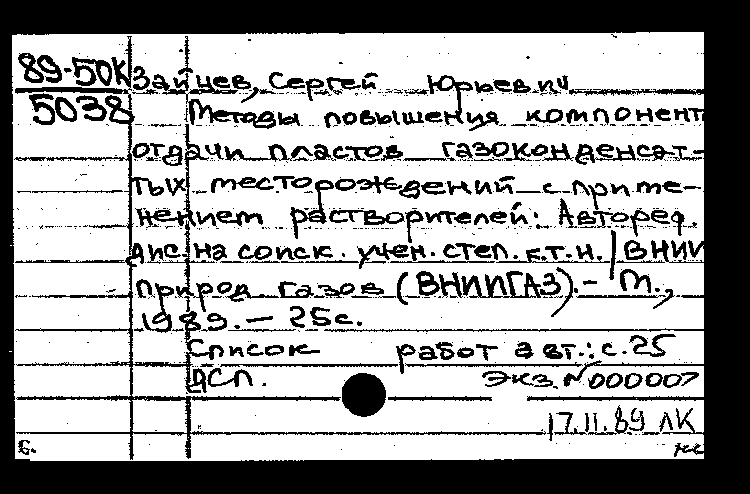 89-50К Зайцев, Сергей Юрьевич
5038 Методы повышения компонент
отдачи пластов газоконденсат-
тых месторождений с приме-
нением растворителей: Автореф.
дис. на соиск. учен. степ. к.т.н. / ВНИИ
природ. газов (ВНИИГАЗ). - М.,
1989. - 25с.
Список работ авт.: с. 25
ДСП. Экз. № 000007
17.11.89 ЛК
Б.